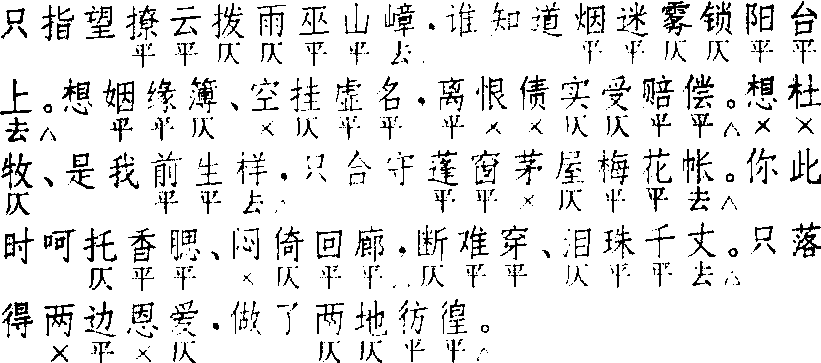 只指望撩云拨雨巫山嶂．谁知道烟迷雾锁阳台
平平仄仄平平去△平平仄仄平平
上。想姻缘簿、空挂虚名．离恨债实受赔偿。想杜
去△平平仄×仄平平平××仄仄平平△××
牧、是我前生样．只合守蓬窗茅屋梅花帐。你此
仄平平去△平平×仄平平去△
时呵托香腮、闷倚回廊．断难穿、泪珠千丈。只落
仄平平×仄平平△仄平平仄平平去△
得两边恩爱．做了两地彷徨。
×平×仄仄仄平平△